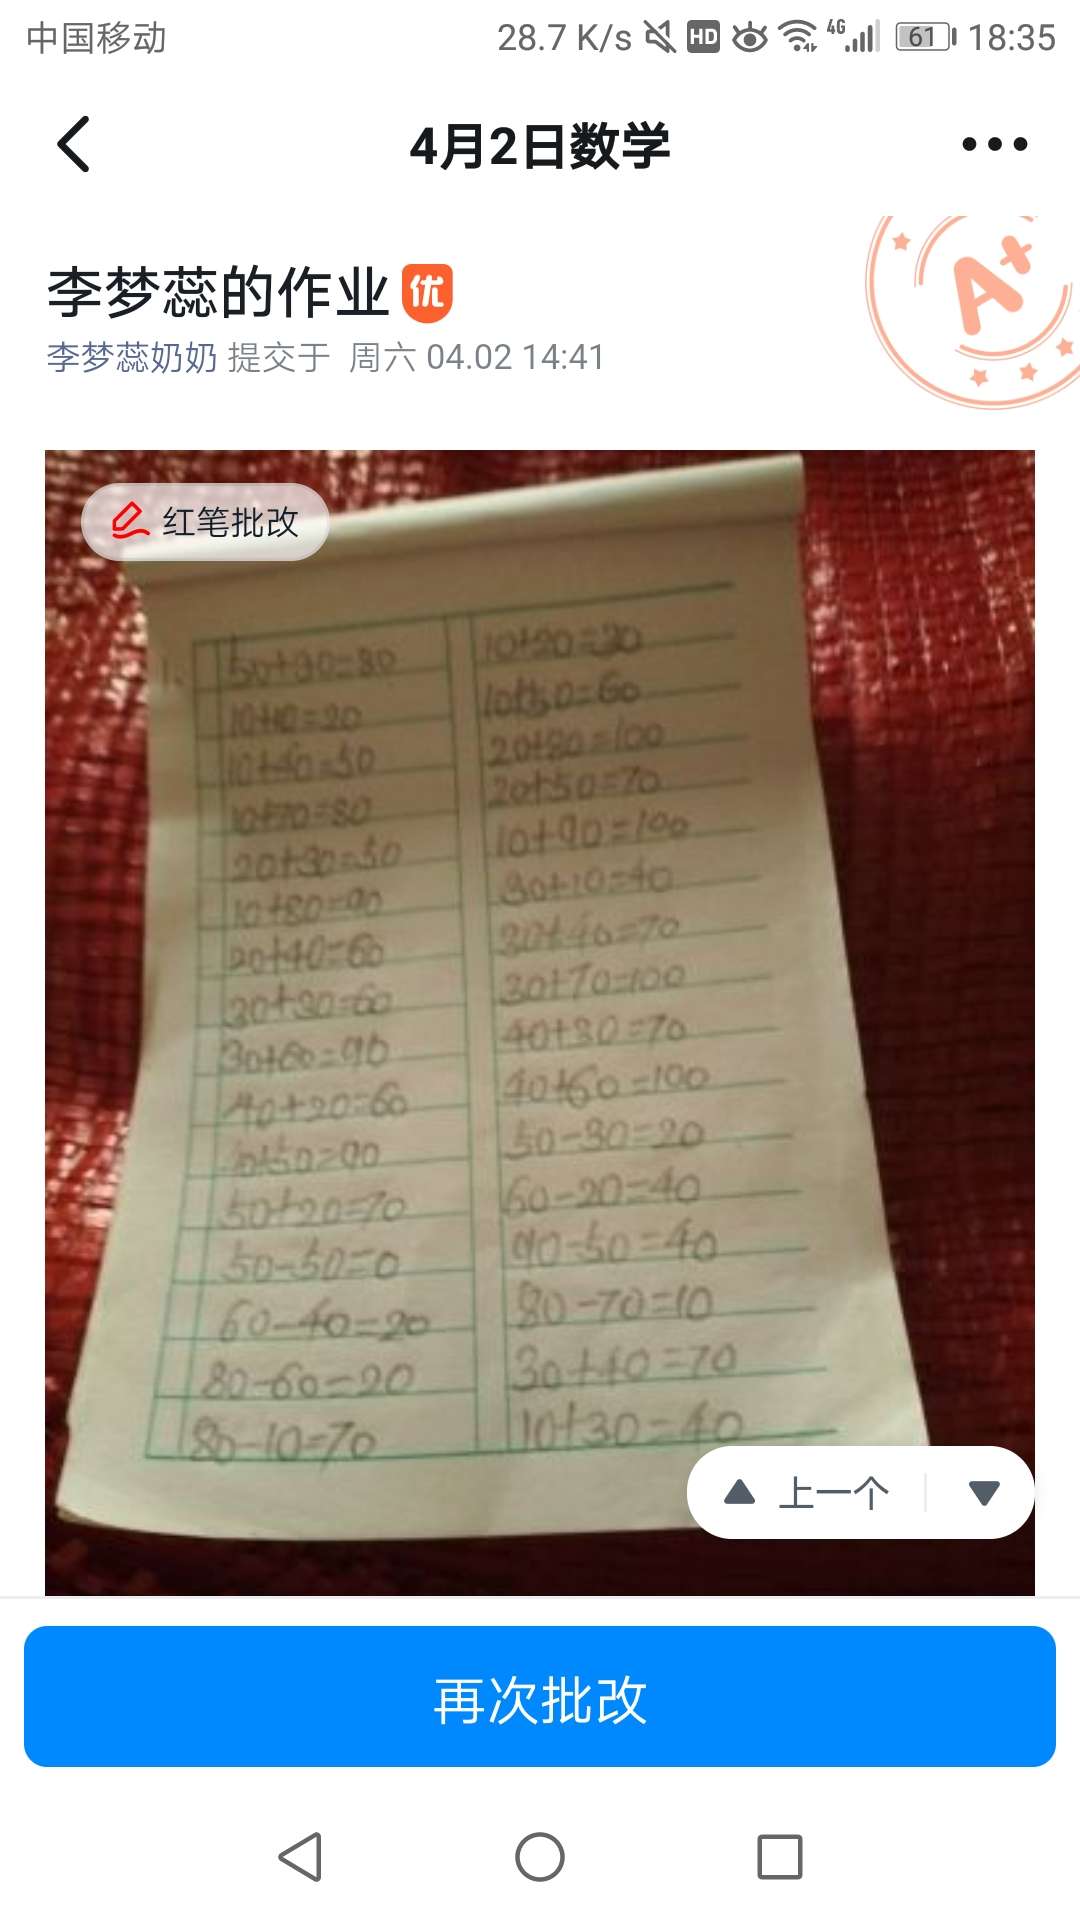 中国移动 28.7 K/s HD 4G 61 18:35
4月2日数学
李梦蕊的作业 优
A+
李梦蕊奶奶 提交于 周六 04.02 14:41
红笔批改
1.
50+30=80
10+10=20
10+40=50
10+70=80
20+30=50
10+80=90
20+40=60
30+30=60
30+60=90
40+20=60
+50=90
50+20=70
50-50=0
60-40=20
80-60=20
80-10=70
10+20=30
10+50=60
20+80=100
20+50=70
10+90=100
30+10=40
30+40=70
30+70=100
40+30=70
40+60=100
50-30=20
60-20=40
90-50=40
80-70=10
30+40=70
10+30=40
上一个
再次批改